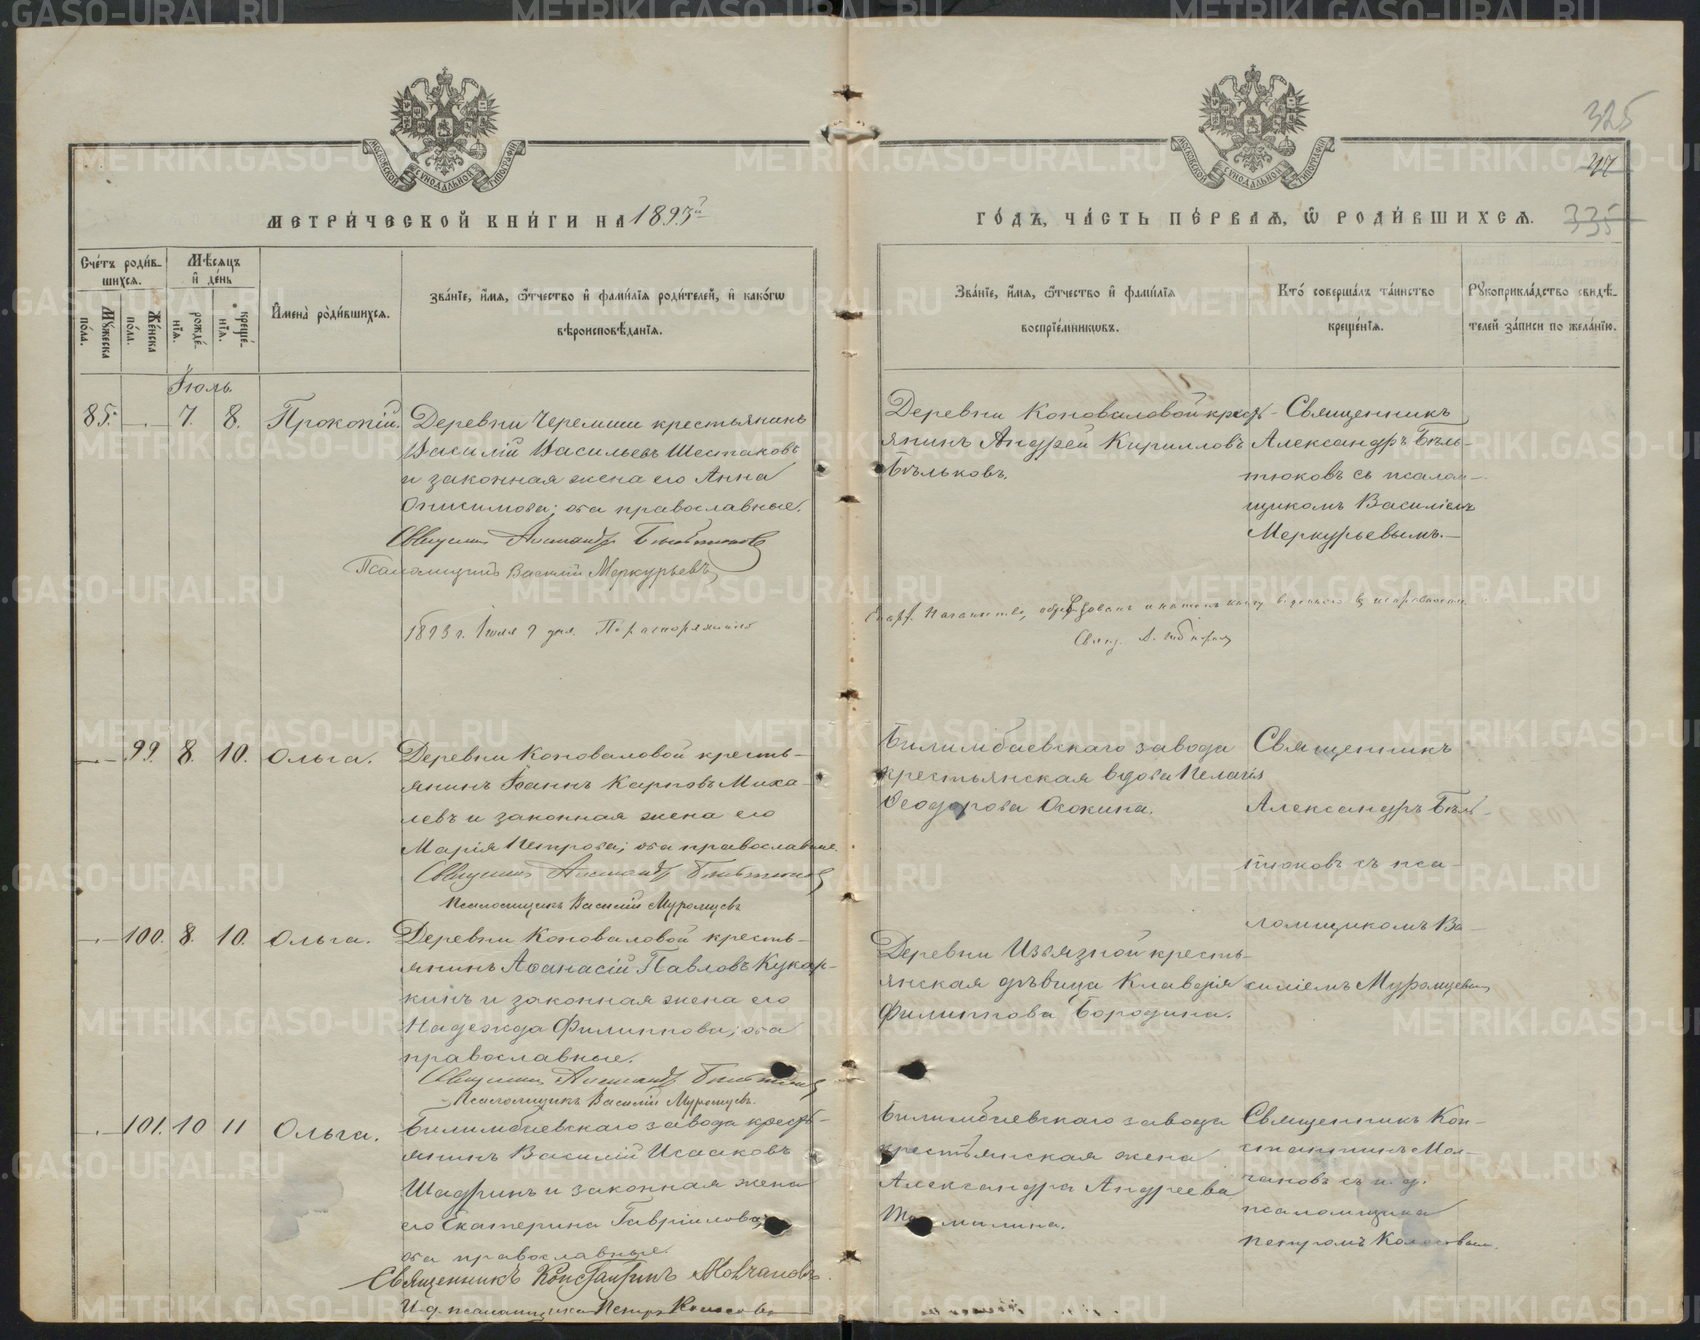 МЕТРИ́ЧЕСКОЙ КНИ́ГИ НА 1893й
ГО́ДЪ, ЧА́СТЬ ПЕ́РВАѦ, Ѡ҆ РОДИ́ВШИХСѦ.
325
217
335
Сче́тъ роди́вшихсѧ.
Мѣ́сѧцъ и҆ де́нь
Мꙋ́жеска по́ла.
Же́нска по́ла.
рожде́нїѧ.
креще́нїѧ.
И҆мена̀ роди́вшихсѧ.
Зва́нїе, и҆́мѧ, ѻ҆́тчество и҆ фами́лїѧ роди́телей, и҆ како́гѡ
вѣроисповѣ́данїѧ.
Зва́нїе, и҆́мѧ, ѻ҆́тчество и҆ фами́лїѧ
воспрїе́мникѡвъ.
Кто̀ соверша́лъ та́инство
креще́нїѧ.
Рꙋкоприкла́дство свидѣ́-
телей за́писи по жела́нїю.
Іюль.
85. — 7. 8. Прокопій. Деревни Черемши крестьянинъ
Василій Васильевъ Шестаковъ
и законная жена его Анна
Онисимова; оба православные.
Священникъ Александръ Бѣльтюковъ
Псаломщикъ Василій Меркурьевъ
Деревни Коноваловой крест-
янинъ Андрей Кирилловъ
Бѣльковъ.
Священникъ
Александръ Бѣль-
тюковъ съ псалом-
щикомъ Василіемъ
Меркурьевымъ.
1893 г. Іюля 9 дня. По распоряженію
Свящ.
— 99. 8. 10. Ольга. Деревни Коноваловой кресть-
янинъ Іоаннъ Карповъ Миха-
левъ и законная жена его
Марія Петрова; оба православные.
Священникъ Александръ Бѣльтюковъ
Псаломщикъ Василій Муромцевъ
Билимбаевскаго завода
крестьянская вдова Пелагія
Ѳеодорова Осокина.
Священникъ
Александръ Бѣль-
тюковъ съ пса-
ломщикомъ Ва-
силіемъ Муромцевымъ
— 100. 8. 10. Ольга. Деревни Коноваловой кресть-
янинъ Аѳанасій Павловъ Кукар-
кинъ и законная жена его
Надежда Филиппова; оба
православные.
Священникъ Александръ Бѣльтюковъ
Псаломщикъ Василій Муромцевъ.
Деревни Извязной кресть-
янская дѣвица Клавдія
Филиппова Бородина.
— 101. 10 11 Ольга. Билимбаевскаго завода крест-
янинъ Василій Исааковъ
Шадринъ и законная жена
его Екатерина Гавріилова;
оба православные.
Священникъ Константинъ Молчановъ.
И. д. псаломщика Петръ Колосовъ
Билимбаевскаго завода
крестьянская жена
Александра Андреева
Священникъ Кон-
стантинъ Мол-
чановъ съ и. д.
псаломщика
Петромъ Колосовым.